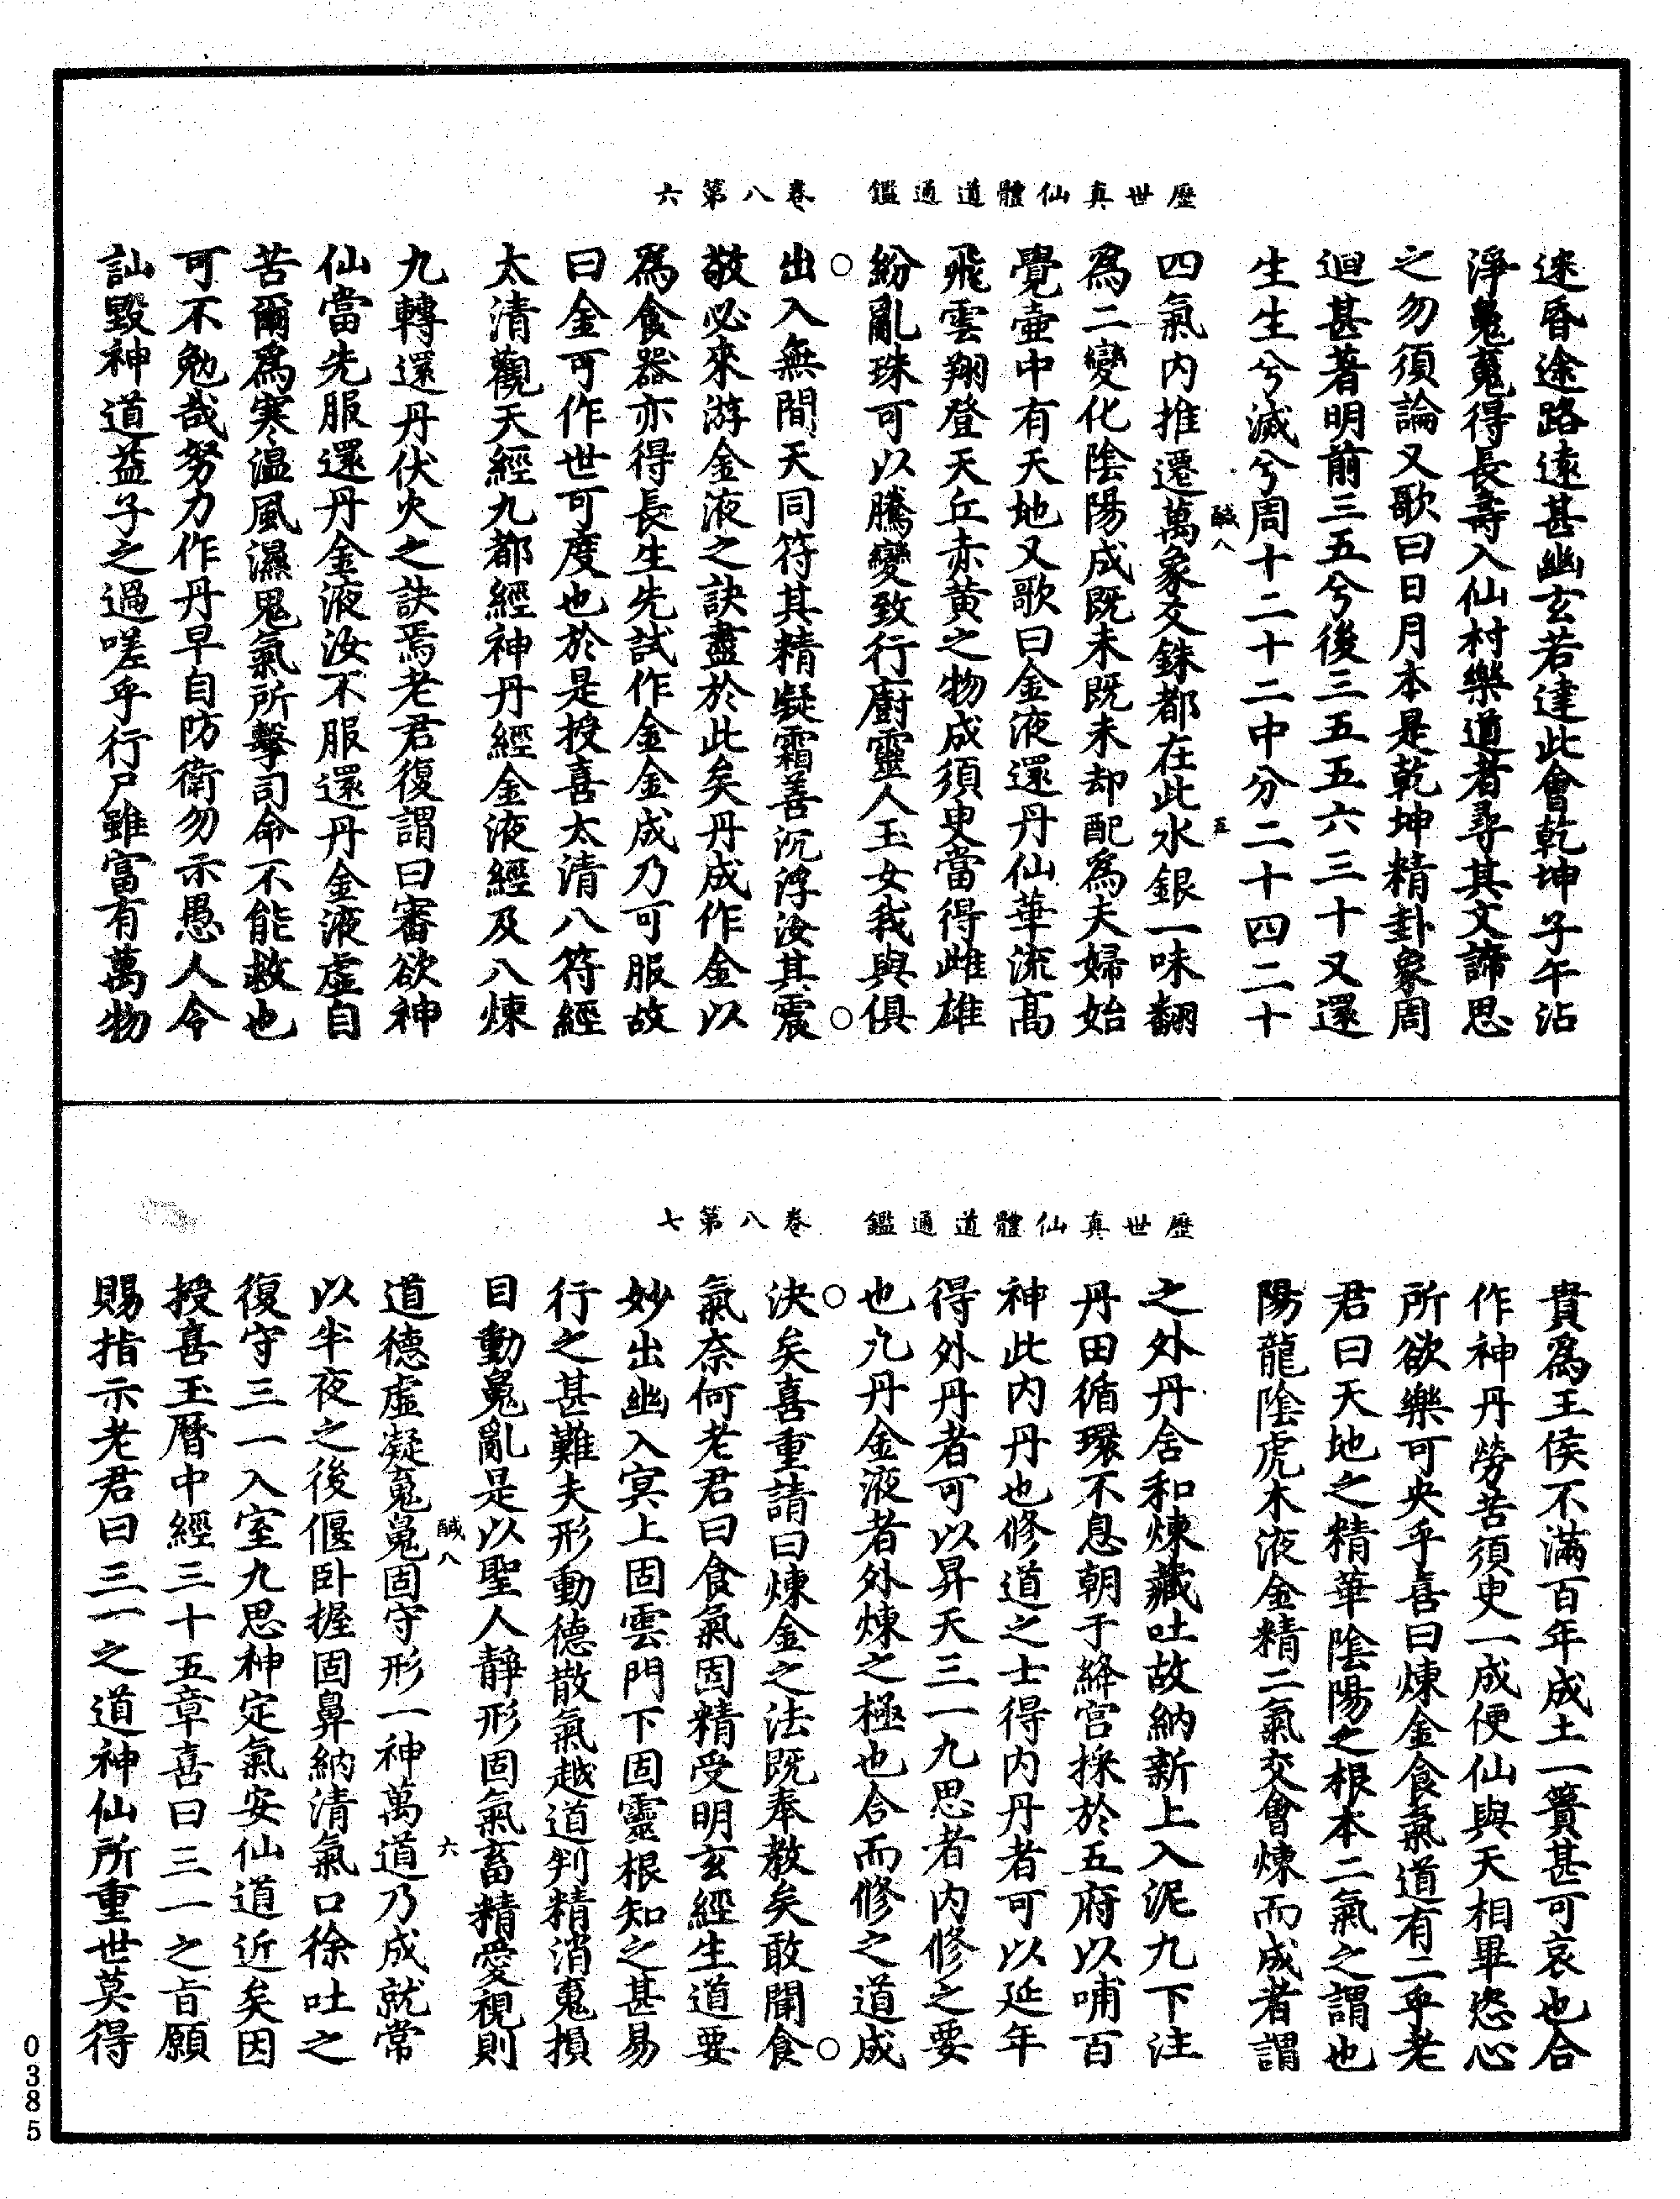 歷世真仙體道通鑑　卷八第六
迷昏途路遠甚幽玄若達此會乾坤子午沾
淨䰟䰟得長壽入仙村樂道者尋其文諦思
之勿須論又歌曰日月本是乾坤精卦象周
迴甚著明前三五兮後三五五六三十又還
生生兮滅兮周十二十二中分二十四二十
四氣內推遷萬象爻銖都在此水銀一味翻
鹹八
五
為二變化陰陽成既未既未却配為夫婦始
覺壺中有天地又歌曰金液還丹仙華流高
飛雲翔登天丘赤黃之物成須臾當得雌雄
紛亂珠可以騰變致行廚靈人玉女我與俱
出入無間天同符其精凝霜善沉浮汝其震
敬必來游金液之訣盡於此矣丹成作金以
為食器亦得長生先試作金金成乃可服故
曰金可作世可度也於是授喜太清八符經
太清觀天經九都經神丹經金液經及八煉
九轉還丹伏火之訣焉老君復謂曰審欲神
仙當先服還丹金液汝不服還丹金液虛自
苦爾為寒溫風濕鬼氣所擊司命不能救也
可不勉哉努力作丹早自防衛勿示愚人令
訕毀神道益子之過嗟乎行尸雖富有萬物
歷世真仙體道通鑑　卷八第七
貴為王侯不滿百年成土一簣甚可哀也合
作神丹勞苦須臾一成便仙與天相畢恣心
所欲樂可央乎喜曰煉金食氣道有二乎老
君曰天地之精華陰陽之根本二氣之謂也
陽龍陰虎木液金精二氣交會煉而成者謂
之外丹含和煉藏吐故納新上入泥九下注
丹田循環不息朝于絳宮採於五府以哺百
神此內丹也修道之士得內丹者可以延年
得外丹者可以昇天三一九思者內修之要
也九丹金液者外煉之極也合而修之道成
決矣喜重請曰煉金之法既奉教矣敢聞食
氣奈何老君曰食氣固精受明玄經生道要
妙出幽入冥上固雲門下固靈根知之甚易
行之甚難夫形動德散氣越道判精消䰟損
目動䰟亂是以聖人靜形固氣畜精愛視則
鹹八
六
道德虛凝䰟䰟固守形一神萬道乃成就常
以半夜之後偃卧握固鼻納清氣口徐吐之
復守三一入室九思神定氣安仙道近矣因
授喜玉曆中經三十五章喜曰三一之旨願
賜指示老君曰三一之道神仙所重世莫得
0385